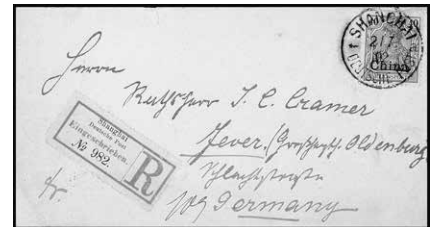 SHANGHAI
DEUTSCHE
China
Herrn
Rathsherr J. C. Cramer
Jever./Großhzgth. Oldenburg
Schlachtstraße
Germany
Shanghai
Deutsche Post
Eingeschrieben.
№ 982.
R